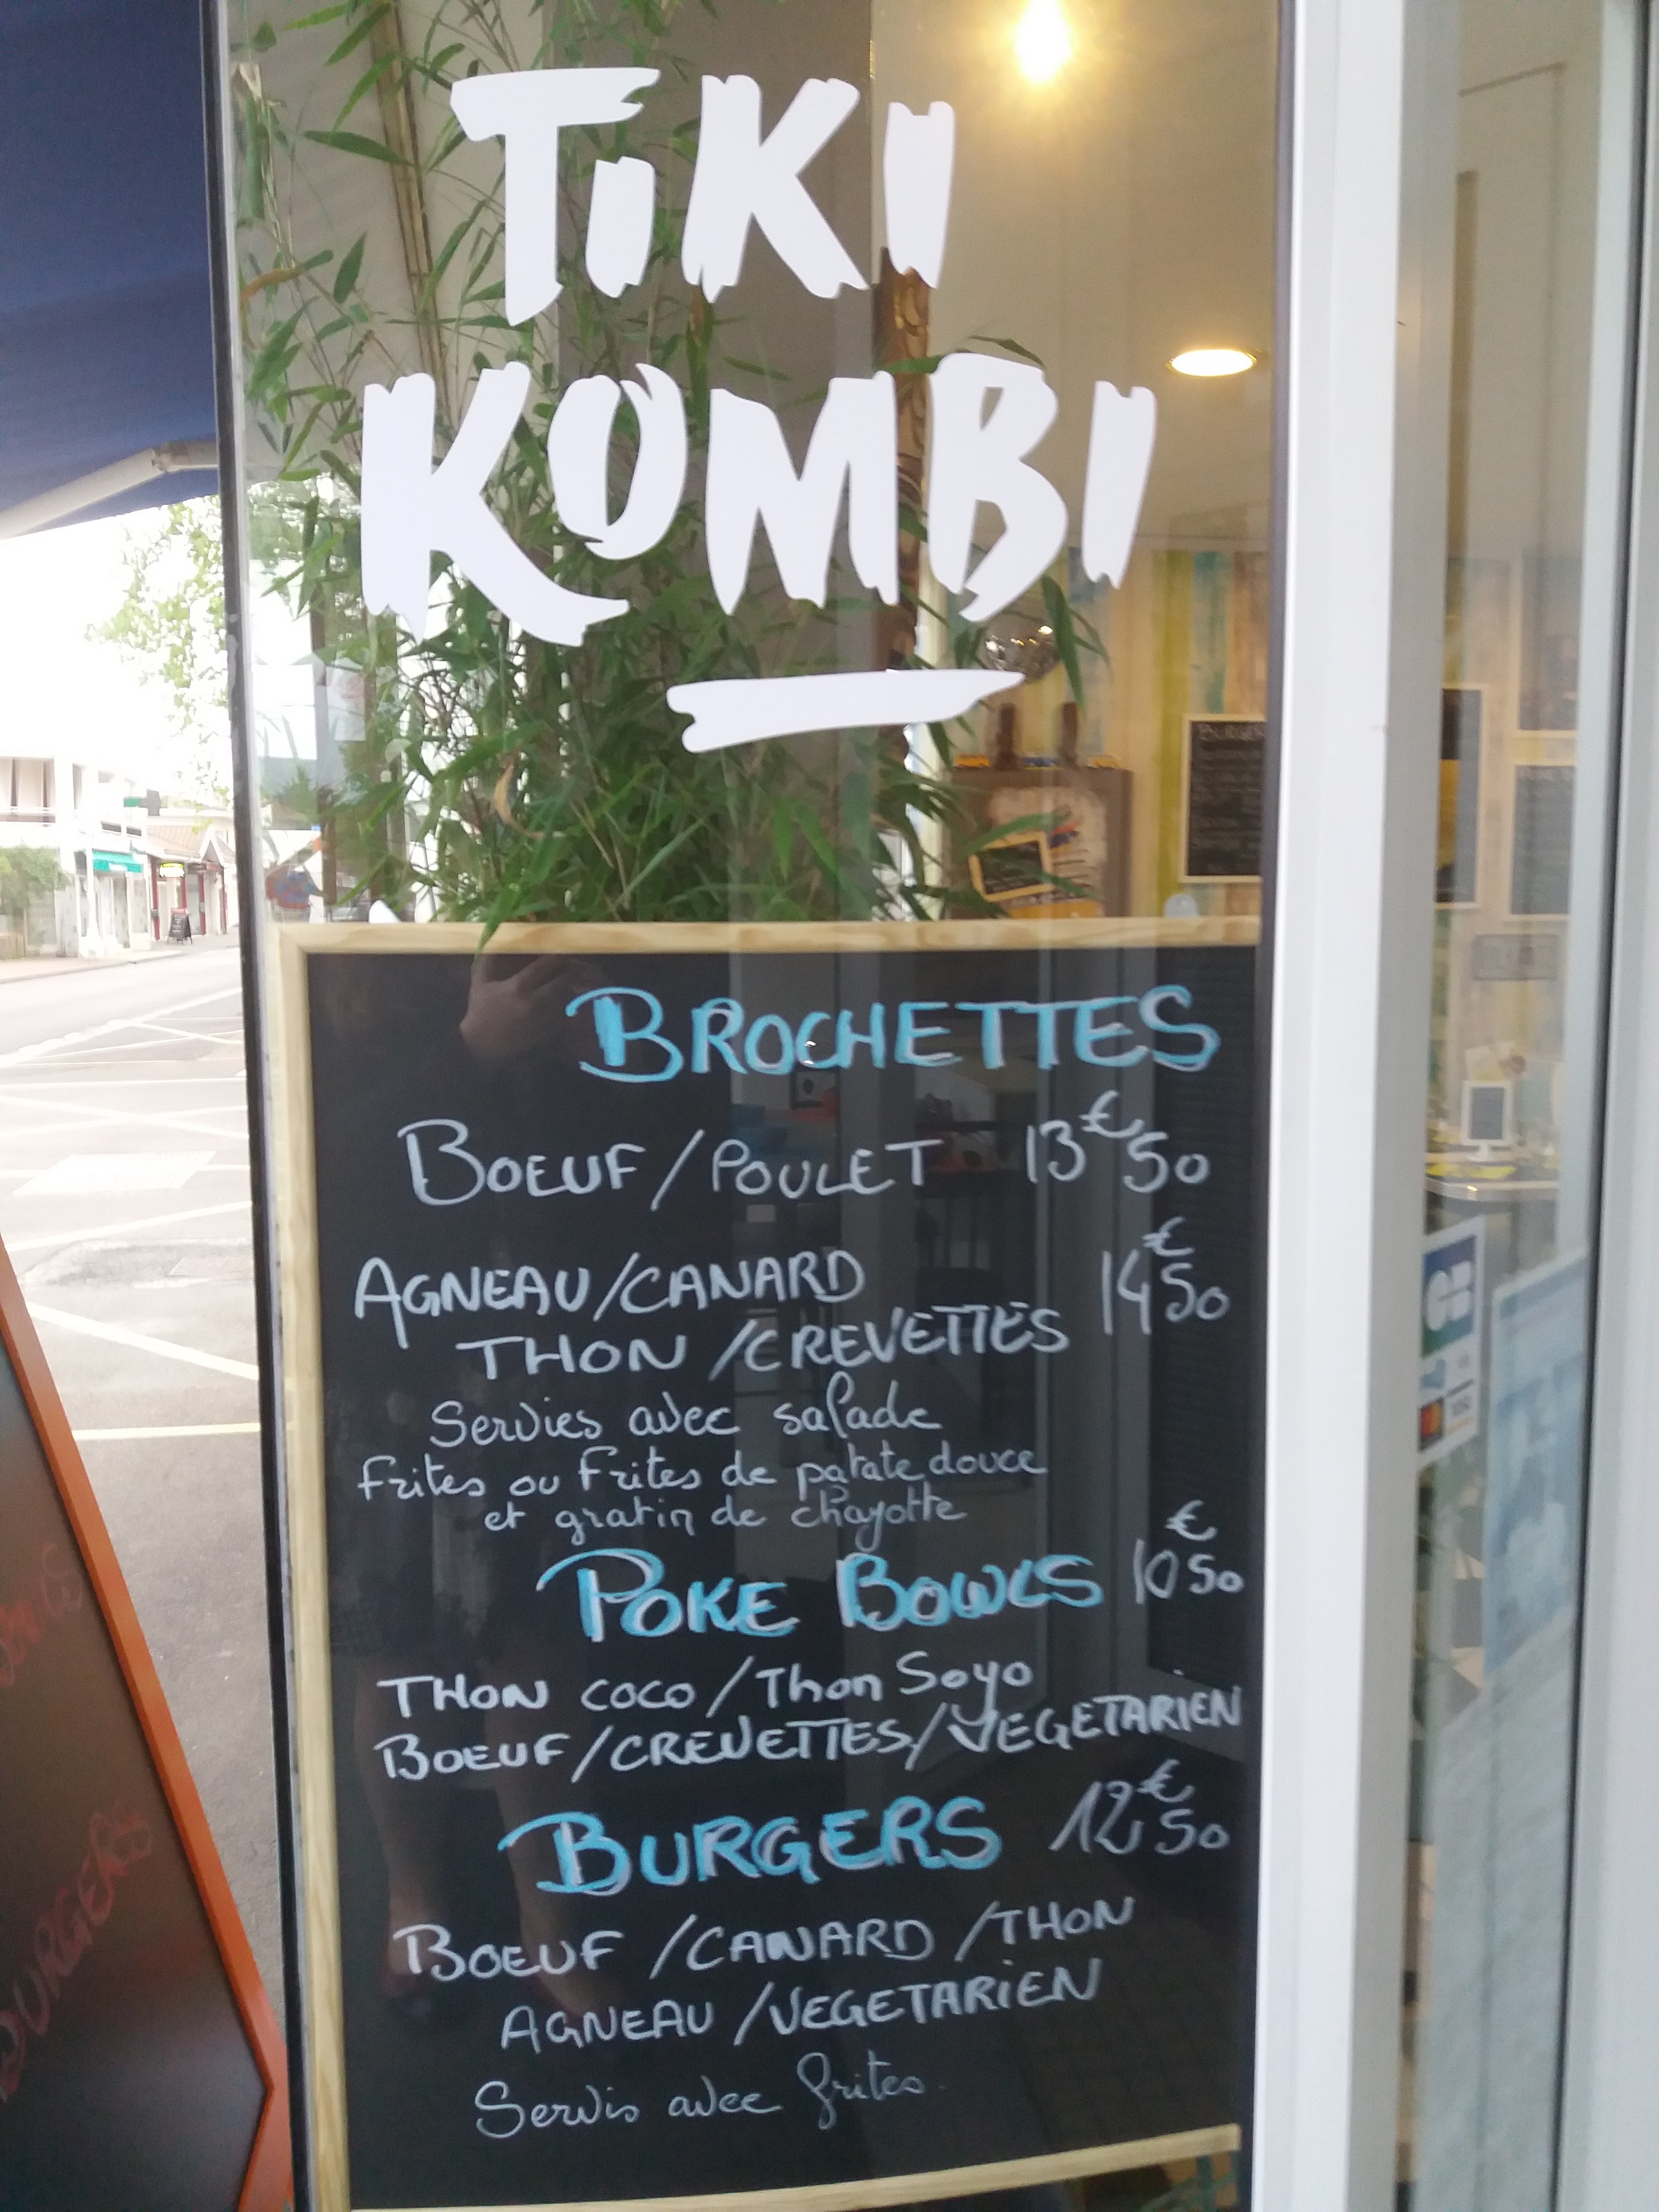 TiKI
KOMBI
BURGER
BROCHETTES
BOEUF/POULET 13€50
AGNEAU/CANARD 14€50
THON/CREVETTES
Servies avec salade
frites ou frites de patate douce
et gratin de chayotte
POKE BOWLS 10€50
THON COCO/Thon Soyo
BOEUF/CREVETTES/VEGETARIEN
BURGERS 12€50
BOEUF/CANARD/THON
AGNEAU/VEGETARiEN
Servis avec frites.
CB
VISA
BURGERS